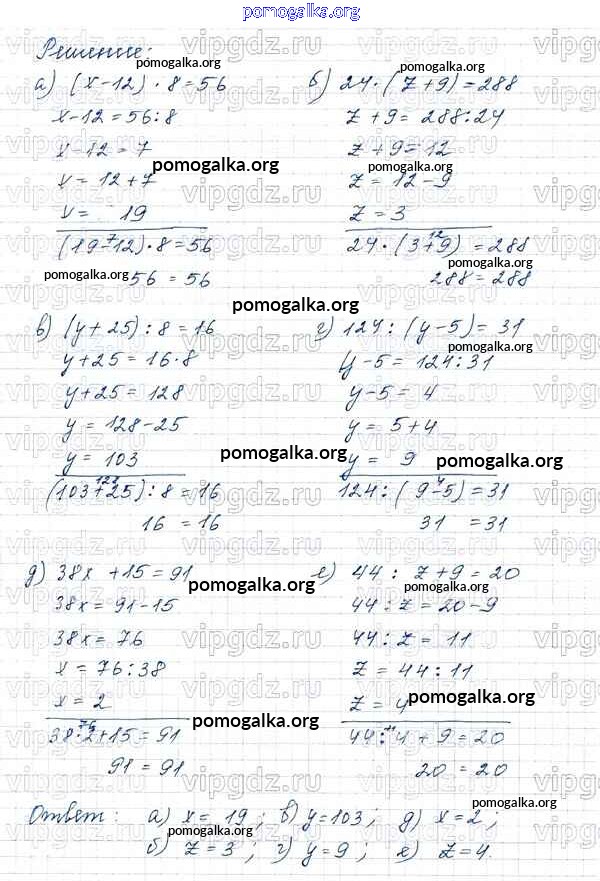 pomogalka.org
Решение:
а) (x-12) · 8 = 56
x-12 = 56:8
x-12 = 7
x = 12+7
x = 19
(19-12)·8 = 56
7
56 = 56
б) 24 · (z+9) = 288
z+9 = 288:24
z+9 = 12
z = 12-9
z = 3
24 · (3+9) = 288
12
288 = 288
в) (y+25) : 8 = 16
y+25 = 16·8
y+25 = 128
y = 128-25
y = 103
(103+25) : 8 = 16
16 = 16
г) 124 : (y-5) = 31
y-5 = 124:31
y-5 = 4
y = 5+4
y = 9
124 : (9-5) = 31
4
31 = 31
д) 38x + 15 = 91
38x = 91-15
38x = 76
x = 76:38
x = 2
38·2+15 = 91
76
91 = 91
е) 44 : z+9 = 20
44 : z = 20-9
44 : z = 11
z = 44:11
z = 4
44:4 + 9 = 20
11
20 = 20
Ответ: а) x = 19; в) y = 103; д) x = 2;
б) z = 3; г) y = 9; е) z = 4.
pomogalka.org
vipgdz.ru